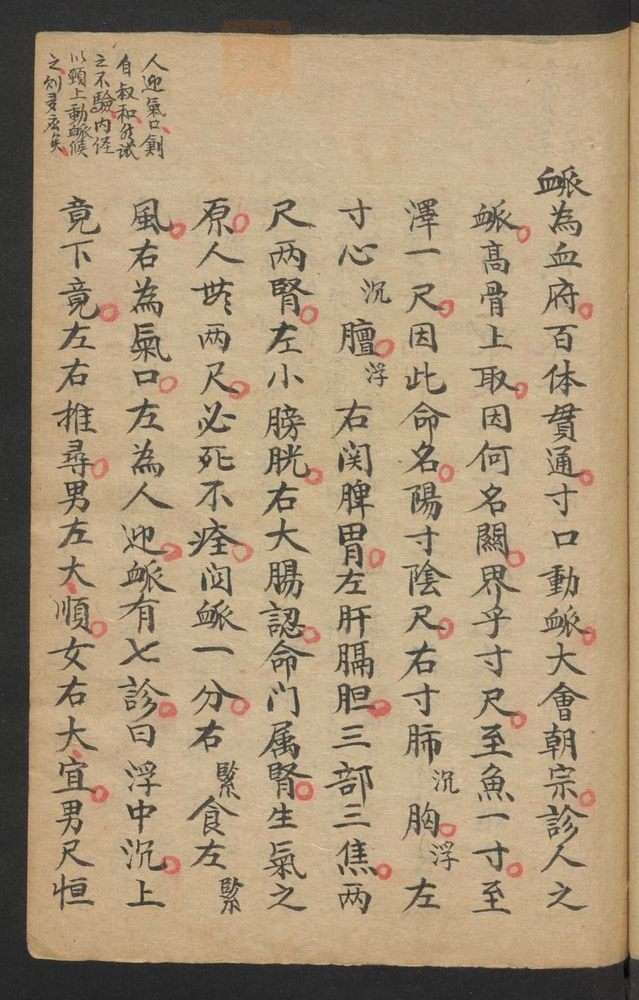 人迎氣口創
自叔和然試
之不驗内経
以頸上動衇候
之則矣
衇為血府百体貫通寸口動衇大會朝宗診人之
衇高骨上取因何名關界乎寸尺至魚一寸至
澤一尺因此命名陽寸陰尺右寸肺沉胸浮左
寸心沉膻浮右関脾胃左肝膈胆三部三焦两
尺两腎左小膀胱右大腸認命门属腎生氣之
原人無两尺必死不痊関衇一分右緊食左緊
風右為氣口左為人迎衇有七診曰浮中沉上
竟下竟左右推尋男左大順女右大宜男尺恒